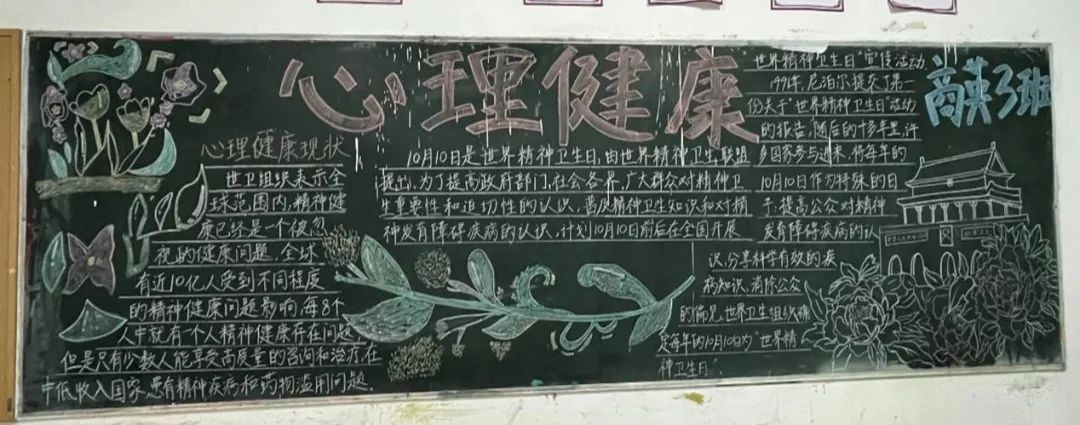 心理健康
高英3班
心理健康现状
世卫组织表示全
球范围内,精神健
康已经是一个被忽
视的健康问题,全球
有近10亿人受到不同程度
的精神健康问题影响,每8个
人中就有一个人精神健康存在问题
但是只有少数人能享受高质量的咨询和治疗,在
中低收入国家,患有精神疾病和药物滥用问题.
10月10日是世界精神卫生日,由世界精神卫生联盟
提出,为了提高政府部门,社会各界,广大群众对精神卫
生重要性和迫切性的认识,普及精神卫生知识和对精
神发育障碍疾病的认识,计划10月10日前后在全国开展
世界精神卫生日"宣传活动
1991年,尼泊尔提交了第一
份关于"世界精神卫生日"活动
的报告,随后的十多年里,许
多国家参与进来,将每年的
10月10日作为特殊的日
子,提高公众对精神
发育障碍疾病的认
识,分享科学有效的疾
病知识,消除公众
的偏见,世界卫生组织确
定每年的10月10日为"世界精
神卫生日".